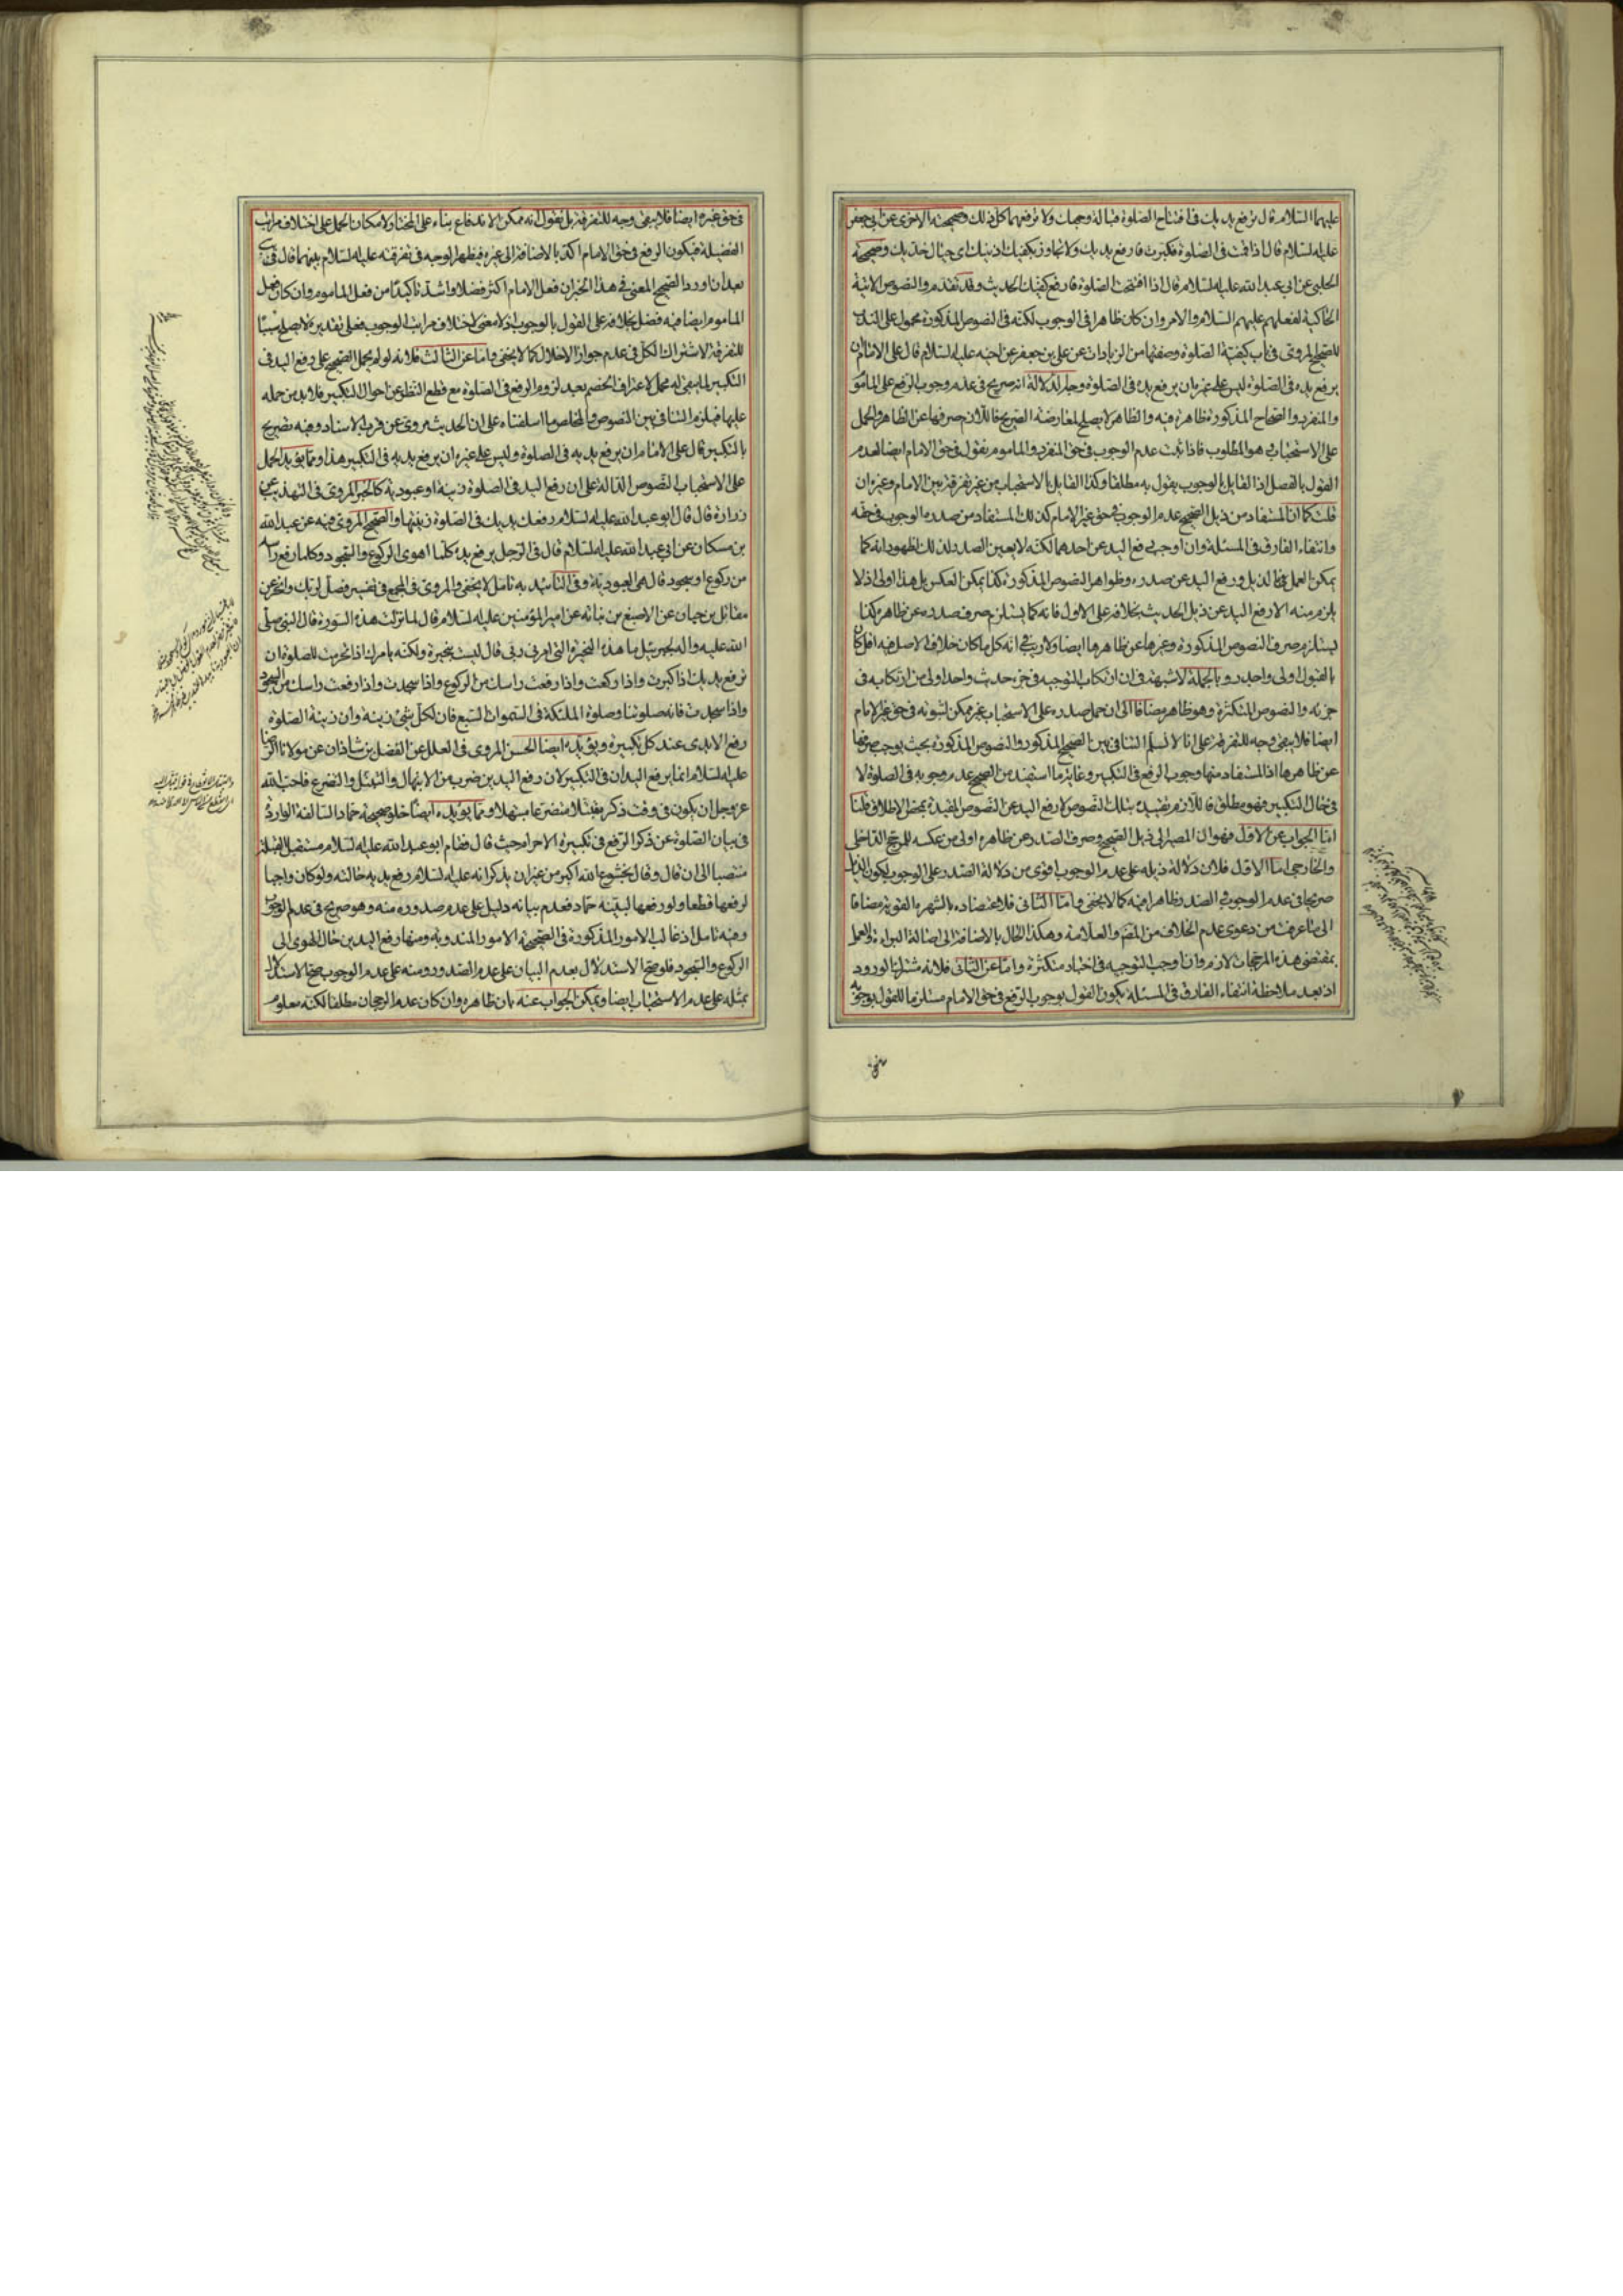 عليهما السلام قال ترفع يديك في افتتاح الصلوة قبالة وجهك ولا ترفعهما كل ذلك وصحيحته الاخرى عن ابي جعفر
عليه السلام قال اذا قمت في الصلوة فكبرت فارفع يديك ولا تجاوز بكفيك اذنيك اي حيال خديك وصحيحة
الحلبي عن ابي عبد الله عليه السلام قال اذا افتتحت الصلوة فارفع كفيك الحديث وقد تقدم والنصوص الاتية
الحاكية لفعلهم عليهم السلام والامر وان كان ظاهرا في الوجوب لكنه في النصوص المذكورة محمول على الندب
للصحيح المروي في باب كيفية الصلوة وصفتها من الزيادات عن علي بن جعفر عن اخيه عليه السلام قال على الامام ان
يرفع يده في الصلوة ليس على غيره ان يرفع يده في الصلوة وجه الدلالة انه صريح في عدم وجوب الرفع على الماموم
والمنفرد والصحاح المذكورة ظاهرة فيه والظاهر لا يصلح لمعارضة الصريح فاللازم صرفها عن الظاهر والحمل
على الاستحباب وهو المطلوب فاذا ثبت عدم الوجوب في حق المنفرد والماموم نقول في حق الامام ايضا لعدم
القول بالفصل اذ القايل بالوجوب يقول به مطلقا وكذا القايل بالاستحباب من غير تفرقة بين الامام وغيره ان
قلت كما ان المستفاد من ذيل الصحيح عدم الوجوب في حق غير الامام كذلك المستفاد من صدره الوجوب في حقه
وانتفاء الفارق في المسئلة وان اوجب رفع اليد عن احدهما لكنه لا يعين الصدر لذلك لظهور انه كما
يمكن العمل بالذيل ورفع اليد عن صدره وظواهر النصوص المذكورة كذا يمكن العكس بل هذا اولى اذ لا
يلزم منه الا رفع اليد عن ذيل الحديث بخلافه على الاول فانه كما يستلزم صرف صدره عن ظاهره كذا
يستلزم صرف النصوص المذكورة وغيرها عن ظاهرها ايضا ولا ريب في انه كل ما كان خلاف الاصل فيه اقل كان
بالقبول اولى واجدر وبالجملة لا شبهة في ان ارتكاب التوجيه في جزء حديث واحد اولى من ارتكابه في
جزئه والنصوص المتكثرة وهو ظاهر مضافا الى ان حمل صدره على الاستحباب غير ممكن لثبوته في حق غير الامام
ايضا فلا يبقى وجه للتفرقة على انا لا نسلم التنافي بين الصحيح المذكور والنصوص المذكورة بحيث يوجب صرفها
عن ظاهرها اذ المستفاد منها وجوب الرفع في التكبير وغاية ما استفيد من الصحيح عدم وجوبه في الصلوة لا
في حال التكبير فهو مطلق فاللازم تقييده بتلك النصوص لا رفع اليد عن النصوص المقيدة بمحض الاطلاق قلنا
اما الجواب عن الاول فهو ان المصير الى ذيل الصحيح وصرف الصدر عن ظاهره اولى من عكسه للمرجح الداخلي
والخارجي اما الاول فلان دلالة ذيله على عدم الوجوب اقوى من دلالة الصدر على الوجوب لكون الذيل
صريحا في عدم الوجوب والصدر ظاهرا فيه كما لا يخفى واما الثاني فلاعتضاده بالشهرة القوية مضافا
الى ما عرفت من دعوى عدم الخلاف من المنتهى والعلامة وهكذا الحال بالاضافة الى اصالة البراءة والعمل
بمقتضى هذه المرجحات لازم وان اوجب التوجيه في اخبار متكثرة واما عن الثاني فلانه مشترك الورود
اذ بعد ملاحظة انتفاء الفارق في المسئلة يكون القول بوجوب الرفع في حق الامام مستلزما للقول بوجوبه
في حق غيره ايضا فلا يبقى وجه للتفرقة بل نقول انه ممكن الاندفاع بناء على المختار لامكان الحمل على اختلاف مراتب
الفضيلة فيكون الرفع في حق الامام اكد بالاضافة الى غيره فيظهر الوجه في تفرقته عليه السلام بينهما قال في
بعد ان اورد الصحيح المعنى في هذا الخبر ان فعل الامام اكثر فضلا واشد تاكيدا من فعل الماموم وان كان فعل
الماموم ايضا فيه فضل بخلافه على القول بالوجوب اذ لا معنى لاختلاف مراتب الوجوب فعلى تقديره لا يصلح سببا
للتفرقة لاشتراك الكل في عدم جواز الاخلال كما لا يخفى واما عن الثالث فلانه لو لم يحمل الصحيح على رفع اليد في
التكبير لما يبقى له محمل لاعتراف الخصم بعدم لزوم الرفع في الصلوة مع قطع النظر عن احوال التكبير فلا بد من حمله
عليها فيلزم التنافي بين النصوص والمخلص ما اسلفناه على ان الحديث مروي عن قرب الاسناد وفيه تصريح
بالتكبير قال على الامام ان يرفع يديه في الصلوة وليس على غيره ان يرفع يديه في التكبير هذا ومما يؤيد الحمل
على الاستحباب النصوص الدالة على ان رفع اليد في الصلوة زينة او عبودية كالخبر المروي في التهذيب عن
زرارة قال قال ابو عبد الله عليه السلام رفعك يديك في الصلوة زينتها والصحيح المروي فيه عن عبد الله
بن مسكان عن ابي عبد الله عليه السلام قال في الرجل يرفع يده كلما اهوى للركوع والسجود وكلما رفع راسه
من ركوع او سجود قال هي العبودية وفي التاييد به تامل لا يخفى والمروي في المجمع في تفسير فصل لربك وانحر عن
مقاتل بن حيان عن الاصبغ بن نباتة عن امير المؤمنين عليه السلام قال لما نزلت هذه السورة قال النبي صلى
الله عليه واله لجبرئيل ما هذه النحيرة التي امرني ربي قال ليست بنحيرة ولكنه يامرك اذا تحرمت للصلوة ان
ترفع يديك اذا كبرت واذا ركعت واذا رفعت راسك من الركوع واذا سجدت واذا رفعت راسك من السجود
واذا سجدت فانه صلوتنا وصلوة الملئكة في السموات السبع فان لكل شئ زينة وان زينة الصلوة
رفع الايدي عند كل تكبيرة ويؤيده ايضا الحسن المروي في العلل عن الفضل بن شاذان عن مولانا الرضا
عليه السلام انما يرفع اليدان في التكبير لان رفع اليدين ضرب من الابتهال والتبتل والتضرع فاحب الله
عز وجل ان يكون في وقت ذكره متبتلا متضرعا مبتهلا ومما يؤيده ايضا خلو صحيحة حماد السالفة الواردة
في بيان الصلوة عن ذكر الرفع في تكبيرة الاحرام حيث قال فقام ابو عبد الله عليه السلام مستقبل القبلة
منتصبا الى ان قال وقال بخشوع الله اكبر من غير ان يذكر انه عليه السلام رفع يديه حالته ولو كان واجبا
لرفعها قطعا ولو رفعها لبينه حماد فعدم بيانه دليل على عدم صدوره منه وهو صريح في عدم الوجوب
وفيه تامل اذ غالب الامور المذكورة في الصحيحة الامور المندوبة ومنها رفع اليدين حال الهوي الى
الركوع والسجود فلو صح الاستدلال بعدم البيان على عدم الصدور ومنه على عدم الوجوب صح الاستدلال
بمثله على عدم الاستحباب ايضا ويمكن الجواب عنه بان ظاهره وان كان عدم الرجحان مطلقا لكنه معلوم